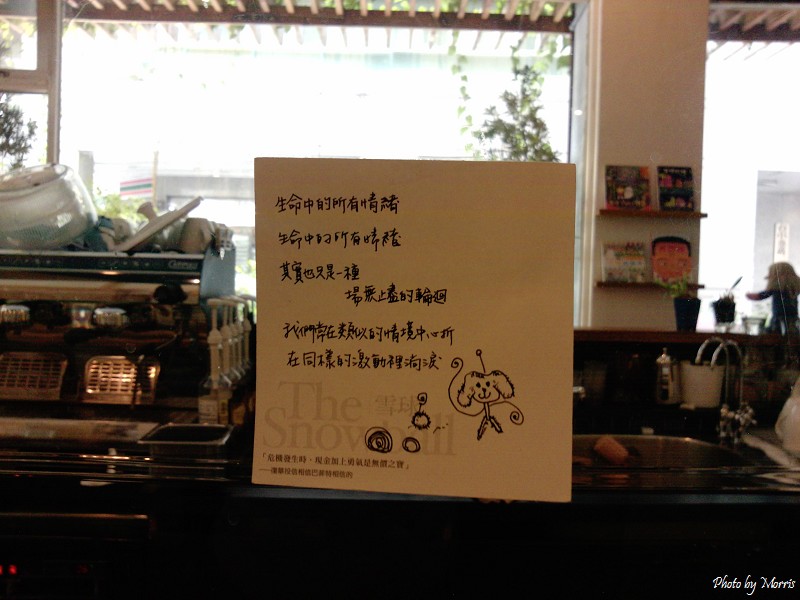 生命中的所有情緒
生命中的所有情緒
其實也只是一種
場無止盡的輪迴
我們常在類似的情境中心折
在同樣的激動裡淌淚
The 雪球
Snowball
「危機發生時，現金加上勇氣是無價之寶」
Photo by Morris